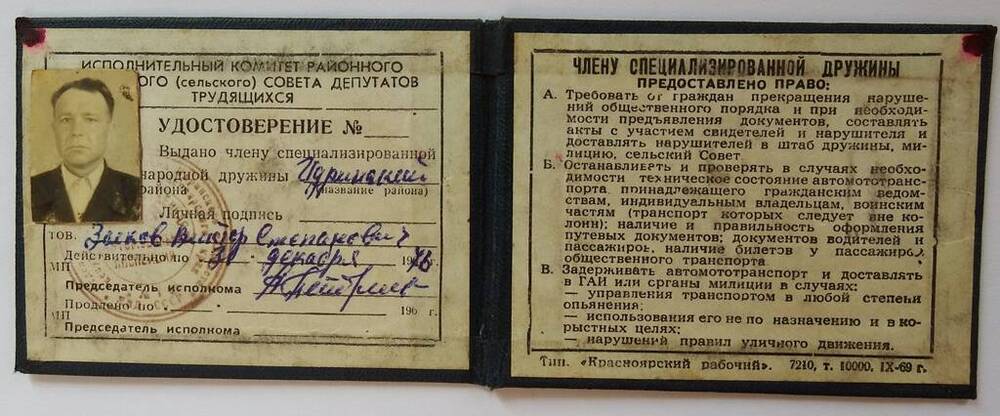 ИСПОЛНИТЕЛЬНЫЙ КОМИТЕТ РАЙОННОГО
ОГО (сельского) СОВЕТА ДЕПУТАТОВ
ТРУДЯЩИХСЯ
УДОСТОВЕРЕНИЕ №
Выдано члену специализированной
народной дружины Идринский
района (название района)
Личная подпись
тов. Зыков Виктор Степанович
Действительно по «30» декабря 1976
МП
Председатель исполкома
Продлено по 196 г.
МП
Председатель исполкома
ЧЛЕНУ СПЕЦИАЛИЗИРОВАННОЙ ДРУЖИНЫ
ПРЕДОСТАВЛЕНО ПРАВО:
А. Требовать от граждан прекращения наруше-
ний общественного порядка и при необходи-
мости предъявления документов, составлять
акты с участием свидетелей и нарушителя и
доставлять нарушителей в штаб дружины, ми-
лицию, сельский Совет.
Б. Останавливать и проверять в случаях необхо-
димости техническое состояние автомототранс-
порта принадлежащего гражданским ведом-
ствам, индивидуальным владельцам, воинским
частям (транспорт которых следует вне ко-
лонн); наличие и правильность оформления
путевых документов; документов водителей и
пассажиров, наличие билетов у пассажиров
общественного транспорта
В. Задерживать автомототранспорт и доставлять
в ГАИ или органы милиции в случаях:
— управления транспортом в любой степени
опьянения;
— использования его не по назначению и в ко-
рыстных целях;
— нарушений правил уличного движения.
Тип. «Красноярский рабочий». 7210, т. 10000. IX-69 г.